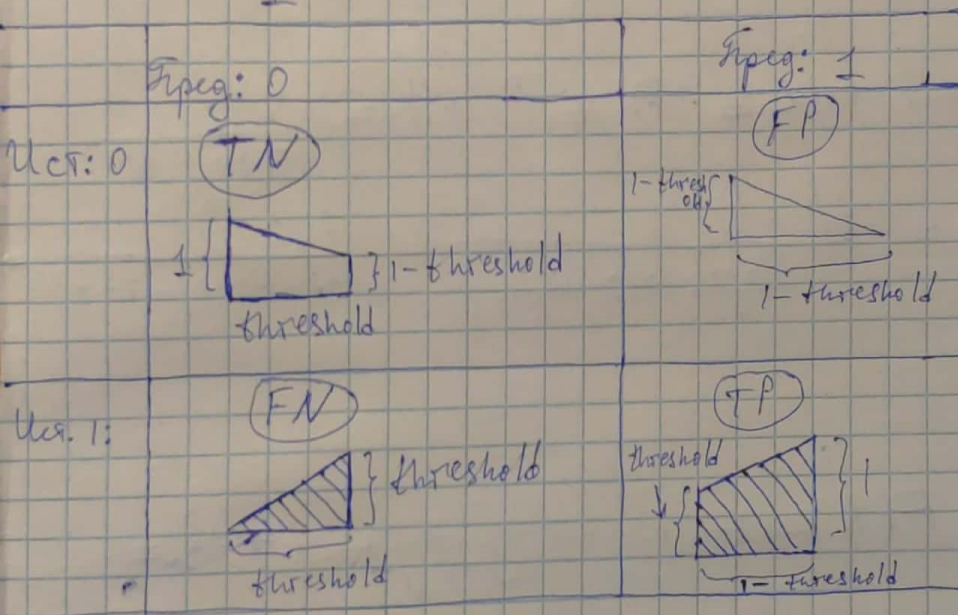 Пред: 0
Пред: 1
Ист: 0
TN
FP
1
1-threshold
threshold
1-thresh
old
1-threshold
Ист. 1:
FN
TP
threshold
threshold
threshold
1
1-threshold